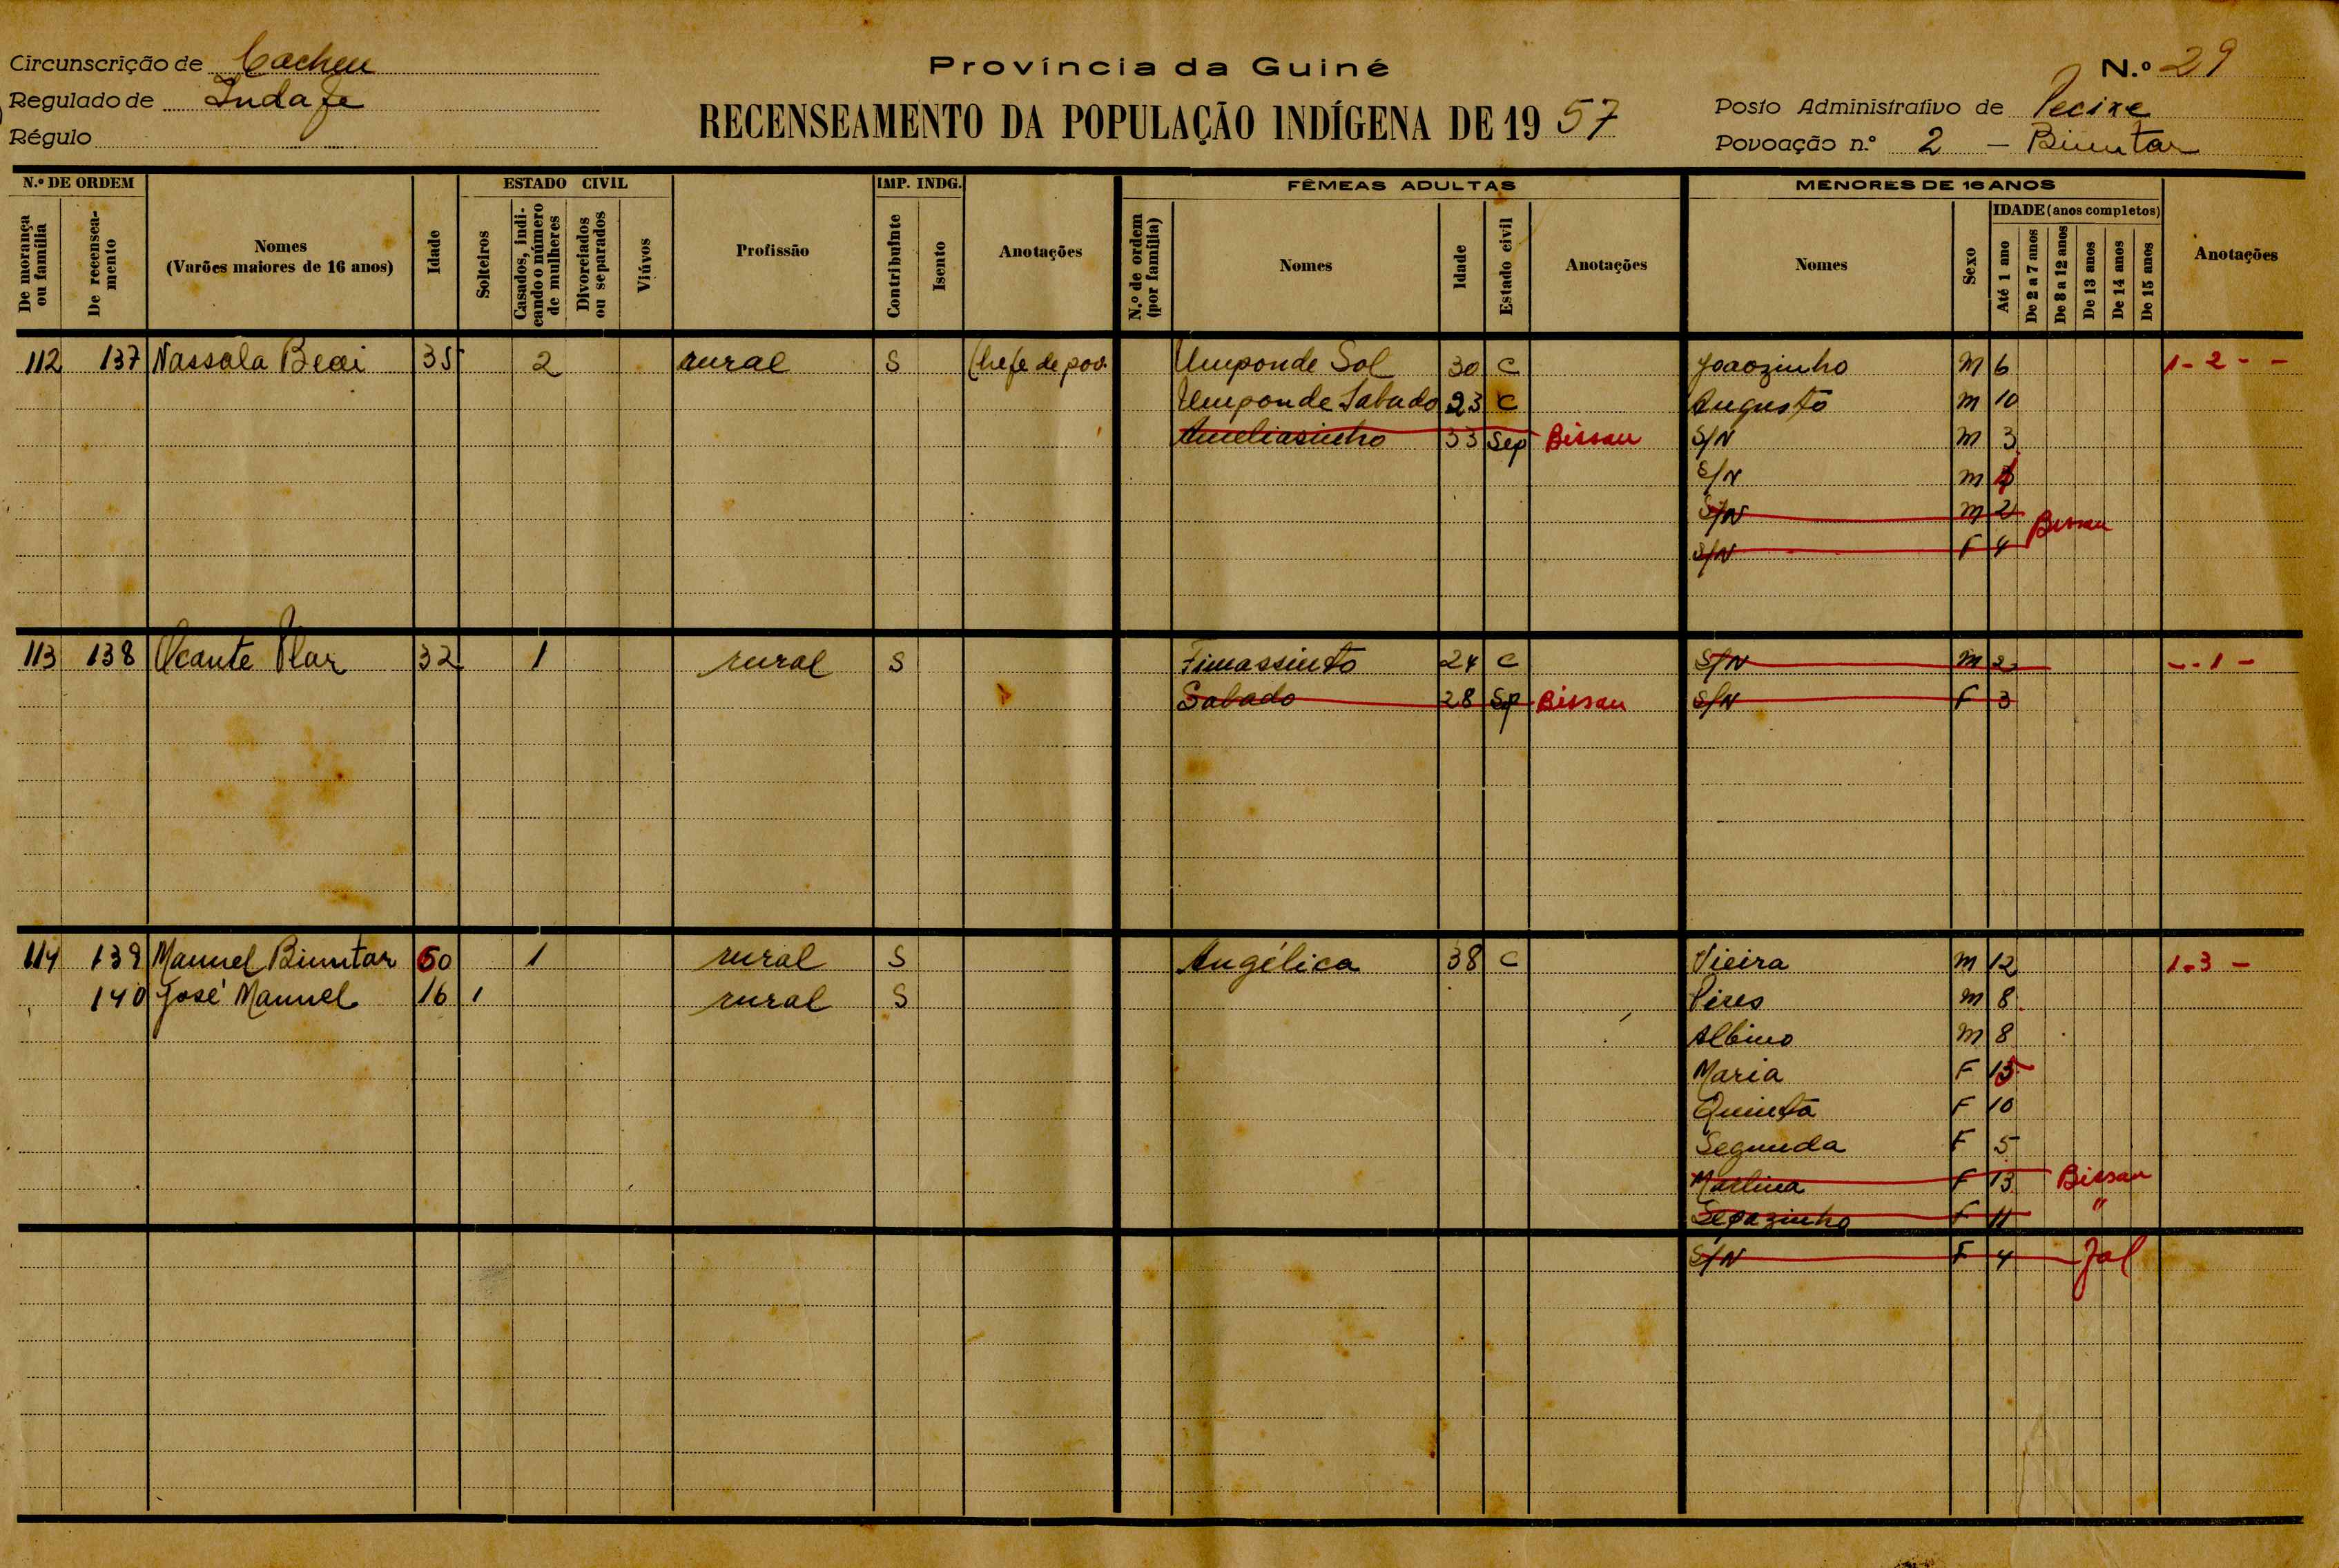 Circunscrição de Cacheu
Regulado de Indafe
Régulo
Província da Guiné
RECENSEAMENTO DA POPULAÇÃO INDÍGENA DE 1957
N.º 29
Posto Administrativo de Pecixe
Povoação n.º 2 - Bimutar
N.º DE ORDEM
De morança ou família
De recensea-mento
Nomes
(Varões maiores de 16 anos)
Idade
ESTADO CIVIL
Solteiros
Casados, indi-cando o número de mulheres
Divorciados ou separados
Viúvos
Profissão
IMP. INDG.
Contribuinte
Isento
Anotações
FÊMEAS ADULTAS
N.º de ordem (por família)
Nomes
Idade
Estado civil
Anotações
MENORES DE 16 ANOS
Nomes
Sexo
IDADE (anos completos)
Até 1 ano
De 2 a 7 anos
De 8 a 12 anos
De 13 anos
De 14 anos
De 15 anos
Anotações
112 137 Nassala Beai 35 2 rural S Chefe de pov. Umponde Sol 30 C Joaozinho M 6 1-2 - -
Umponde Sabado 23 C Augusto M 10
Ameliasinho 33 Sep Bissau S/N M 3
S/N M
S/N M 2 Bissau
S/N F 4
113 138 Ocante Vlar 32 1 rural S Fimassinto 24 C S/N M 2 - - 1 -
Sabado 28 Sp Bissau S/N F 3
114 139 Manuel Bimutar 60 1 rural S Angélica 38 C Vieira M 12 1-3 -
140 José Manuel 16 1 rural S Pires M 8
Albino M 8
Maria F 15
Quinta F 10
Segunda F 5
Martina F 13 Bissau
F 11 "
S/N F 4 Jal